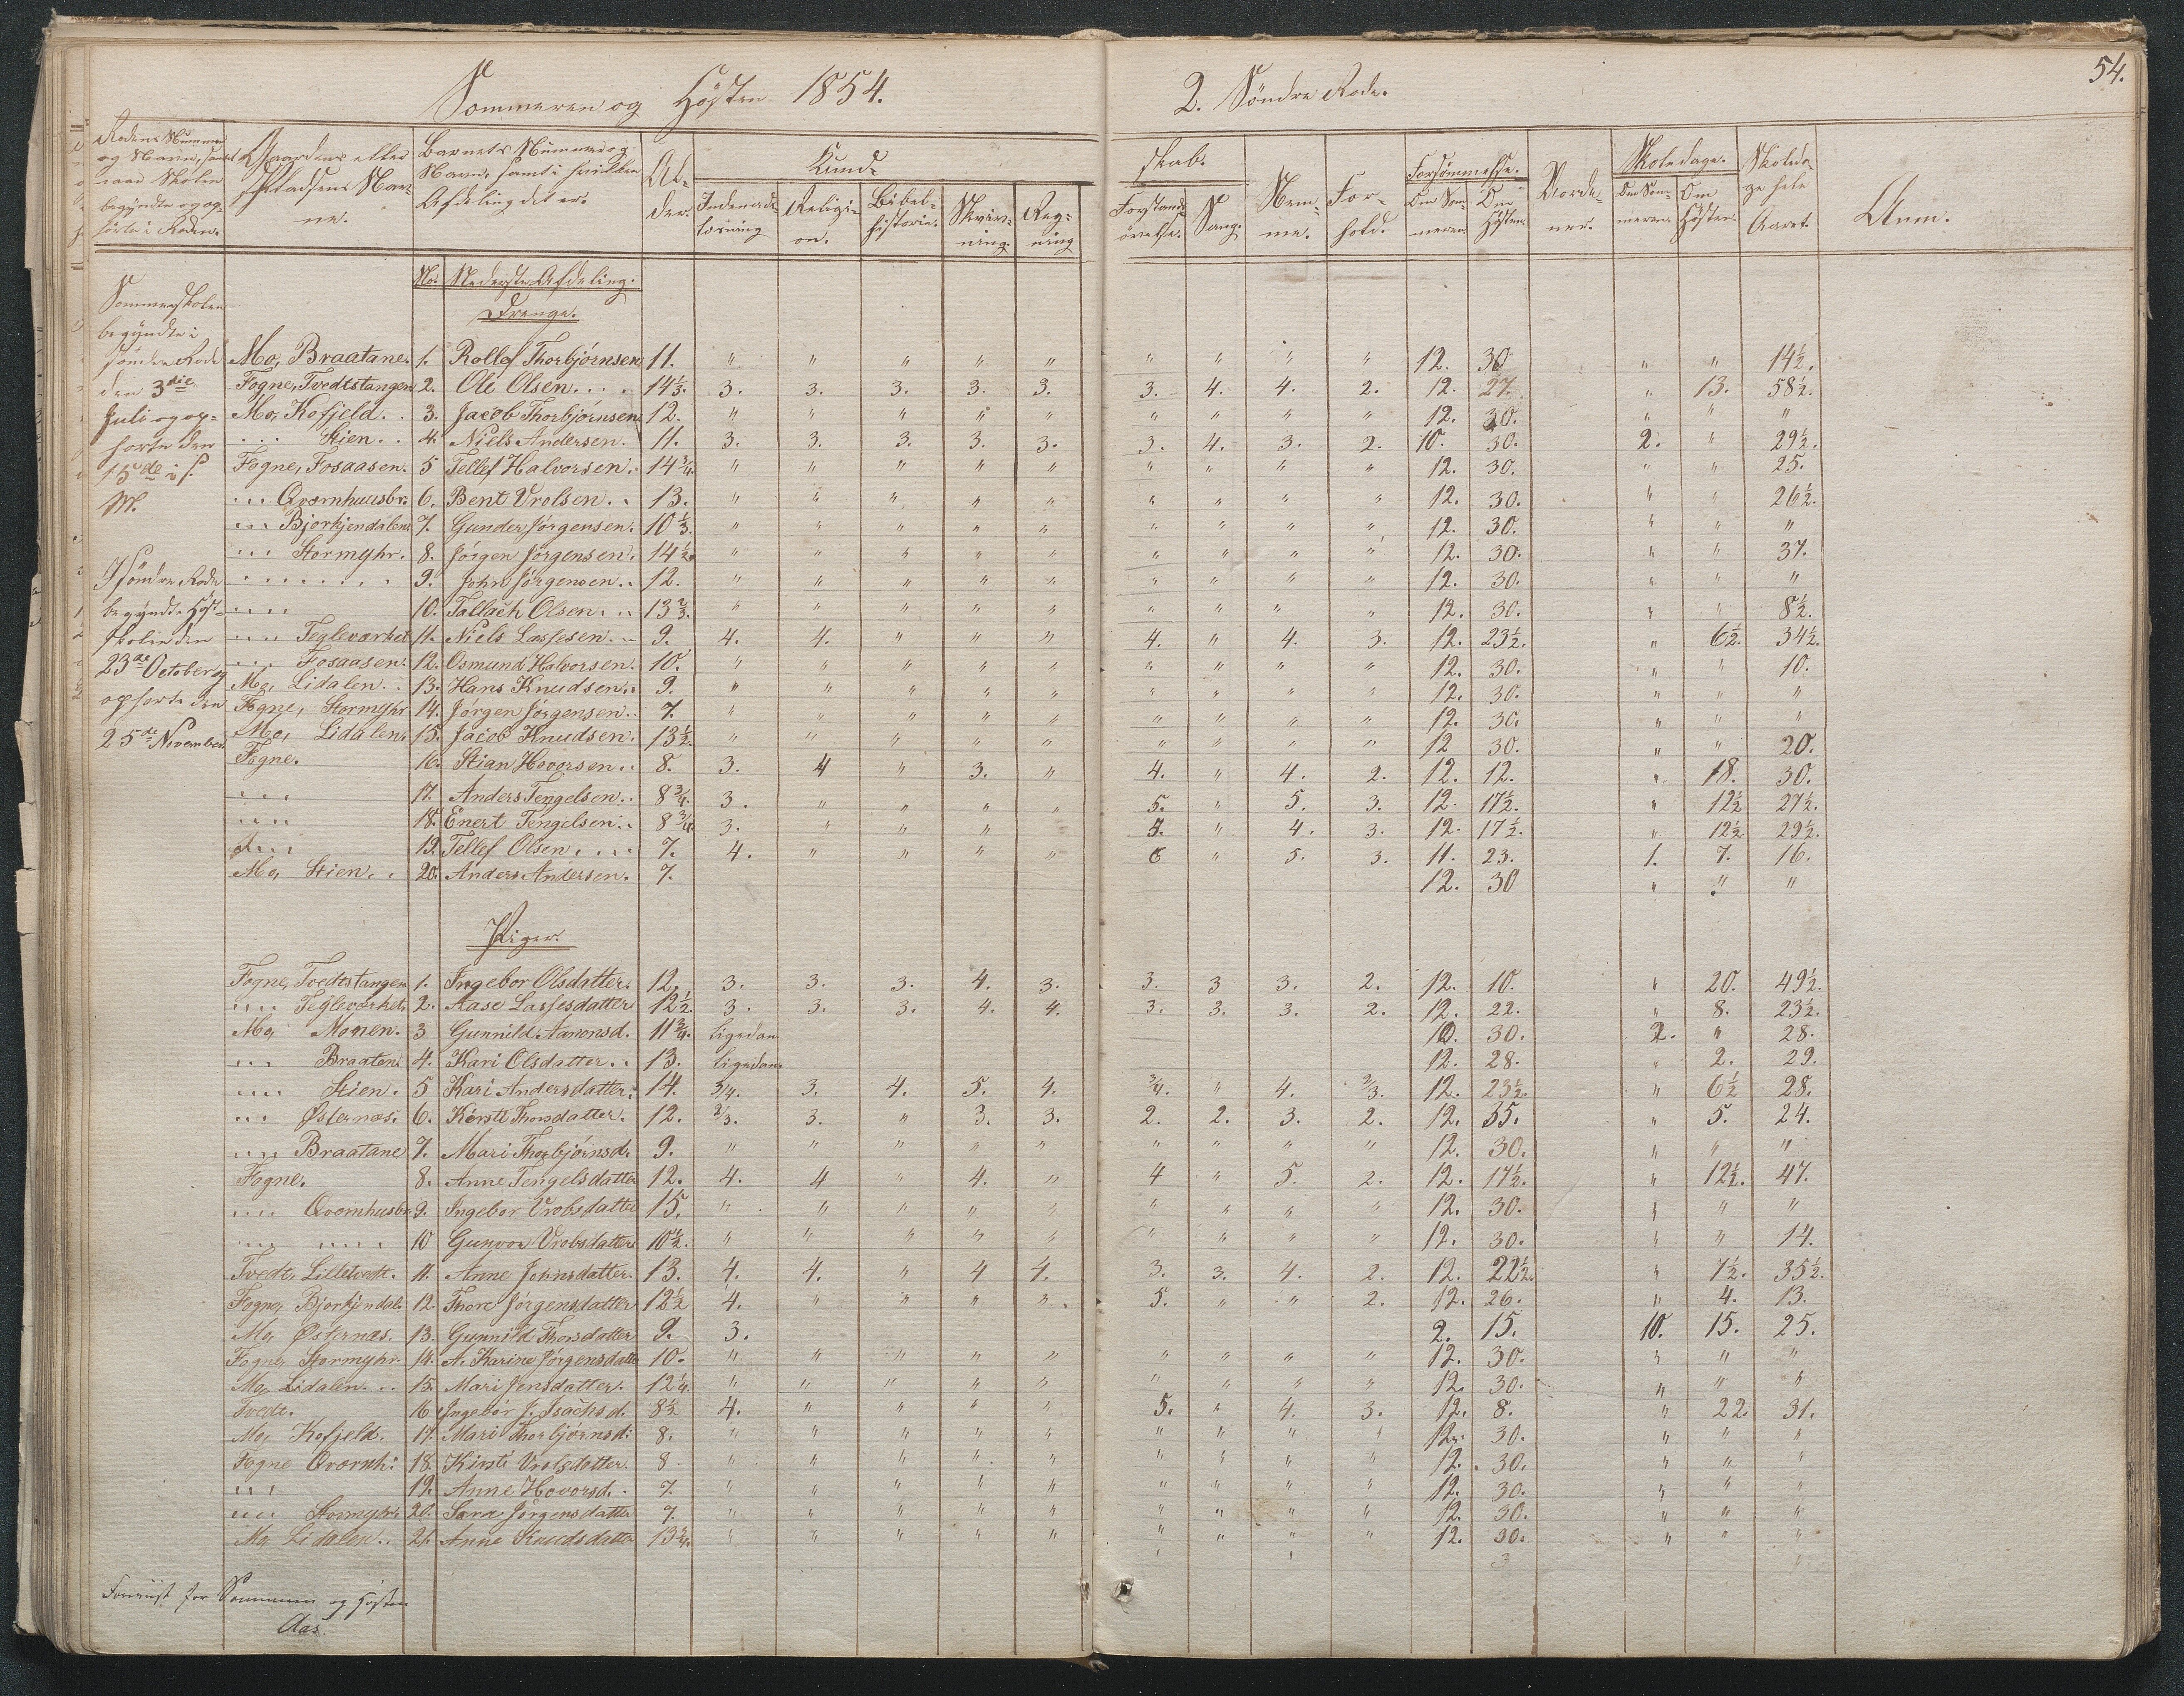 54.
Sommeren og Høsten 1854.
2. Søndre Rode.
Rodens Nummer og Navn, samt naar Skolen begyndte og ophørte i Roden.
Gaardens eller Pladsens Navne.
Barnets Nummer og Navn, samt i hvilken Afdeling det er.
Alder.
Kundskab.
Indenadslæsning
Religion.
Bibelhistorie.
Skrivning.
Regning
Forstandsøvelse.
Sang.
Nemme.
Forhold.
Forsømmelse.
Om Sommeren.
Om Høsten.
Skoledage.
Om Sommeren.
Om Høsten.
Skoledage hele Aaret.
Anm.
Sommerskolen
begyndte i
søndre Rode
den 3die
Juli og op-
hørte den
15de i s.
M.
I søndre Rode
begyndte Høst-
skolen den
23de October og
ophørte den
25de November.
No. Nederste Afdeling.
Drenge.
Mo, Braatane. 1. Rollef Thorbjørnsen 11. " " " " " " " " " 12. 30 " " 14½.
Fogne, Tvedtstangen 2. Ole Olsen. . . . 14⅓. 3. 3. 3. 3. 3. 3. 4. 4. 2. 12. 27. " 13. 58½.
Mo, Kofjeld. . 3. Jacob Thorbjørnsen 12. " " " " " " " " " 12. 30. " " "
... Stien. . 4. Niels Andersen. 11. 3. 3. 3. 3. 3. 3. 4. 3. 2. 10. 30. 2. " 29½.
Fogne, Fosaasen. 5 Tellef Halvorsen. 14¾. " " " " " " " " " 12. 30. " " 25.
... Qvernhuusbr. 6. Bent Vrolsen. . 13. " " " " " " " " " 12. 30. " " 26½.
... Bjorkjendalen 7. Gunder Jørgensen. 10⅓. " " " " " " " " " 12. 30. " " "
... Stormyhr. 8. Jørgen Jørgensen. 14½. " " " " " " " " " 12. 30. " " 37.
....... 9. John Jørgensen. . 12. " " " " " " " " " 12. 30. " " "
.... 10. Tallach Olsen. . . 13⅔. " " " " " " " " " 12. 30. " " 8½.
.... Tegleværket 11. Niels Lassesen. . 9. 4. 4. " " " 4. " 4. 3. 12. 23½. " 6½. 34½.
... Fosaasen. 12. Osmund Halvorsen. 10. " " " " " " " " " 12. 30. " " 10.
Mo, Lidalen. . 13. Hans Knudsen. . 9. " " " " " " " " " 12. 30. " " "
Fogne, Stormyhr 14. Jørgen Jørgensen. 7. " " " " " " " " " 12. 30. " " "
Mo, Lidalen. 15. Jacob Knudsen. 13½. " " " " " " " " " 12 30. " " 20.
Fogne. 16. Stian Hovorsen. . 8. 3. 4 " 3. " 4. " 4. 2. 12. 12. " 18. 30.
... 17. Anders Tengelsen. . 8¾. 3. " " " " 5. " 5. 3. 12. 17½. " 12½ 27½.
... 18. Enert Tengelsen. . 8¾. 3. " " " " 5. " 4. 3. 12. 17½. " 12½. 29½.
... 19. Tellef Olsen. . . . 7. 4. " " " " 6 " 5. 3. 11. 23. 1. 7. 16.
Mo, Stien. . 20. Anders Andersen. 7. 12. 30 " " "
Piger.
Fogne, Tvedtstangen 1. Ingebor Olsdatter. 12. 3. 3. 3. 4. 3. 3. 3 3. 2. 12. 10. " 20. 49½.
... Tegleværket. 2. Aase Lassesdatter 12½. 3. 3. 3. 4. 4. 3. 3. 3. 2. 12. 22. " 8. 23½.
Mo, Monen. 3 Gunnild Aanonsd. 11¾. ligedan 10. 30. 2. " 28.
... Braaten. 4. Kari Olsdatter. . 13. ligedan. 12. 28. " 2. 29.
.... Stien. 5 Kari Andersdatter. 14. 3/4. 3. 4. 5. 4. 3/4. " 4. 2/3. 12. 23½. " 6½ 28.
... Østernæs. 6. Kirsti Thorsdatter. 12. 2/3. 3. " 3. 3. 2. 2. 3. 2. 12. 35. " 5. 24.
.... Braatane 7. Mari Thorbjørnsd. 9. " " " " " " " " " 12. 30. " " "
Fogne. 8. Anne Tengelsdatter 12. 4. 4 " 4. " 4 " 5. 2. 12. 17½. " 12½. 47.
.... Qvernhusbr. 9. Ingebor Vrolsdatter 15. " " " " " " " " " 12. 30. " " "
.... .... 10 Gunvor Vrolsdatter 10½. " " " " " " " " " 12. 30. " " 14.
Tvedt, Lilletvedt. 11. Anne Johnsdatter. 13. 4. 4. " 4 4. 3. 3. 4. 2. 12. 22½. " 7½. 35½.
Fogne, Bjorkjendal. 12. Thore Jørgensdatter 12½ 4. " " " ". 5. " " 2. 12. 26. " 4. 13.
Mo, Østernæs. 13. Gunnild Thorsdatter 9. 3. 2. 15. 10. 15. 25.
Fogne, Stormyhr. 14. A. Karine Jørgensdatter 10. " " " " " " " " " 12. 30. " " "
Mo, Lidalen. . . 15. Mari Jensdatter. 12¼. " " " " " " " " " 12. 30. " " "
Tvedt. 16 Ingebør J. Isachsd. 8½ 4. " " " " 5. " 4. 3. 12. 8. " 22. 31.
Mo, Kofjeld. 17. Mari Thorbjørnsd. 8. " " " " " " " " " 12. 30. " " "
Fogne Qvernh: 18. Kirsti Vrolsdatter. 8. " " " " " " " " " 12. 30. " " "
... 19. Anne Hovorsd. . 7. " " " " " " " " " 12. 30. " " "
... Stormyhr. 20. Sara Jørgensdatter 7. " " " " " " " " " 12. 30. " " "
Mo, Lidalen. . 21. Anne Knudsdatter 13¾. " " " " " " " " " 12. 30. " " "
for Sommeren og Høsten
Aas.